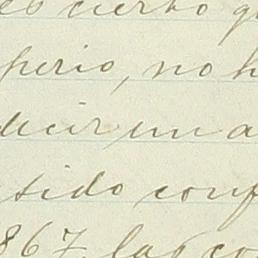 es cierto q
perio, no h
decir un a
tido conf
867, las co